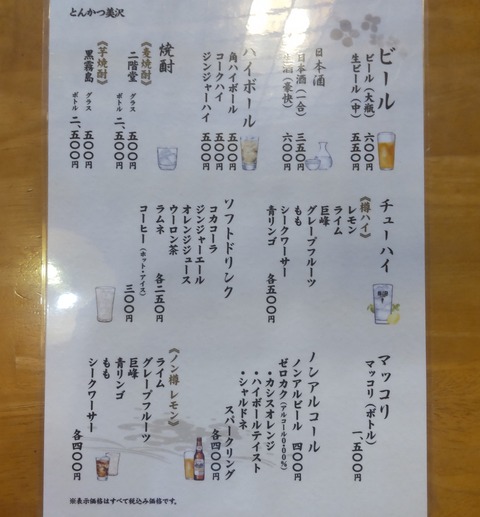 とんかつ美沢
ビール
ビール(大瓶) 六〇〇円
生ビール(中) 五五〇円
日本酒
日本酒(一合) 三五〇円
生酒(豪快) 六〇〇円
ハイボール
角ハイボール 五〇〇円
コークハイ 五〇〇円
ジンジャーハイ 五〇〇円
焼酎
《麦焼酎》
二階堂 グラス 五〇〇円
ボトル 二、五〇〇円
《芋焼酎》
黒霧島 グラス 五〇〇円
ボトル 二、五〇〇円
チューハイ
《樽ハイ》
レモン
ライム
巨峰
グレープフルーツ
もも
シークワーサー
青リンゴ 各五〇〇円
ソフトドリンク
コカコーラ
ジンジャーエール
オレンジジュース
ウーロン茶
ラムネ 各二五〇円
コーヒー(ホット・アイス) 三〇〇円
マッコリ
マッコリ(ボトル) 一、五〇〇円
ノンアルコール
ノンアルビール 四〇〇円
ゼロカク(アルコール0.00%)
・カシスオレンジ
・ハイボールテイスト
・シャルドネ
スパークリング 各四〇〇円
《ノン樽レモン》
ライム
グレープフルーツ
巨峰
青リンゴ
もも
シークワーサー 各四〇〇円
※表示価格はすべて税込み価格です。